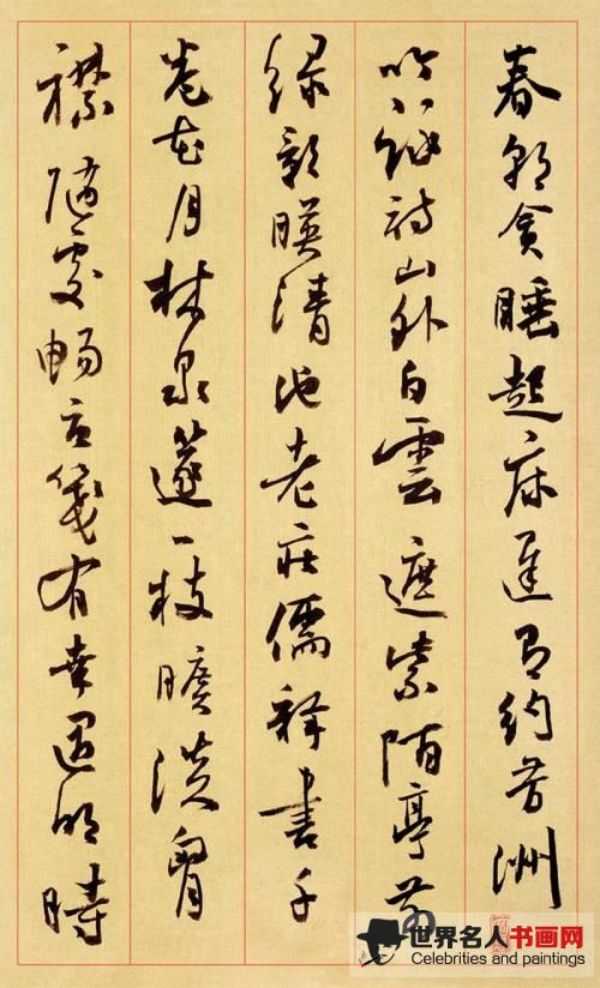 春朝贪睡起床迟约芳洲
吟诗山外白雲遮紫陌亭前
绿影暎清池老庄儒释書千
卷花月林泉篴一枝曠淡胸
襟随处畅笺有幸遇明時
世界名人书画网
Celebrities and paintings